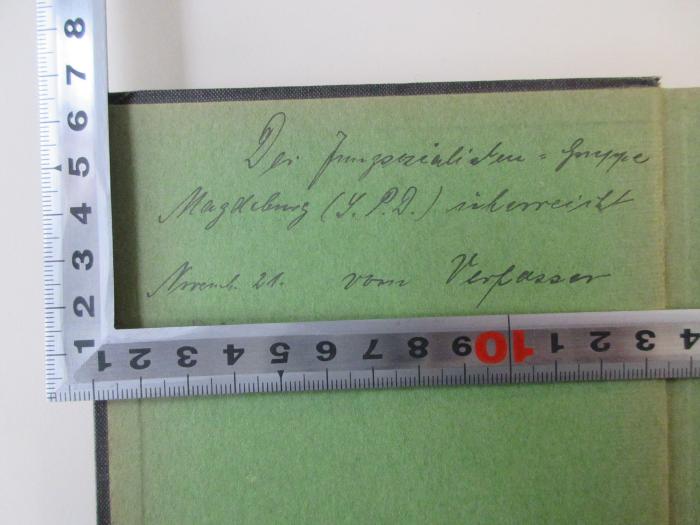 Der Jungsozialisten = Gruppe
Magdeburg (S. P. D.) überreicht
Novemb. 21. vom Verfasser
8
7
6
5
4
3
2
1
1 2 3 4 5 6 7 8 9 10 1 2 3 4